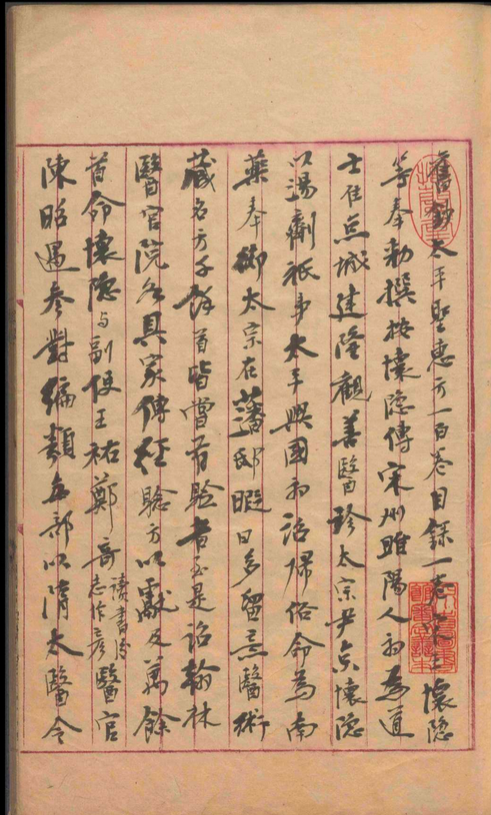 舊鈔太平聖惠方一百卷目錄一卷宋王懷隱
等奉勅撰按懷隱傳宋州睢陽人初為道
士住京城建隆觀善醫診太宗尹京懷隱
以湯劑祗事太平興國初詔歸俗命為尚
藥奉御太宗在藩邸暇日多留意醫術
藏名方千餘首皆嘗有驗者至是詔翰林
醫官院各具家傳經驗方以獻及萬餘
首命懷隱与副使王祐鄭奇讀書後志作彥醫官
陳昭遇參對編類每部以隋太醫令